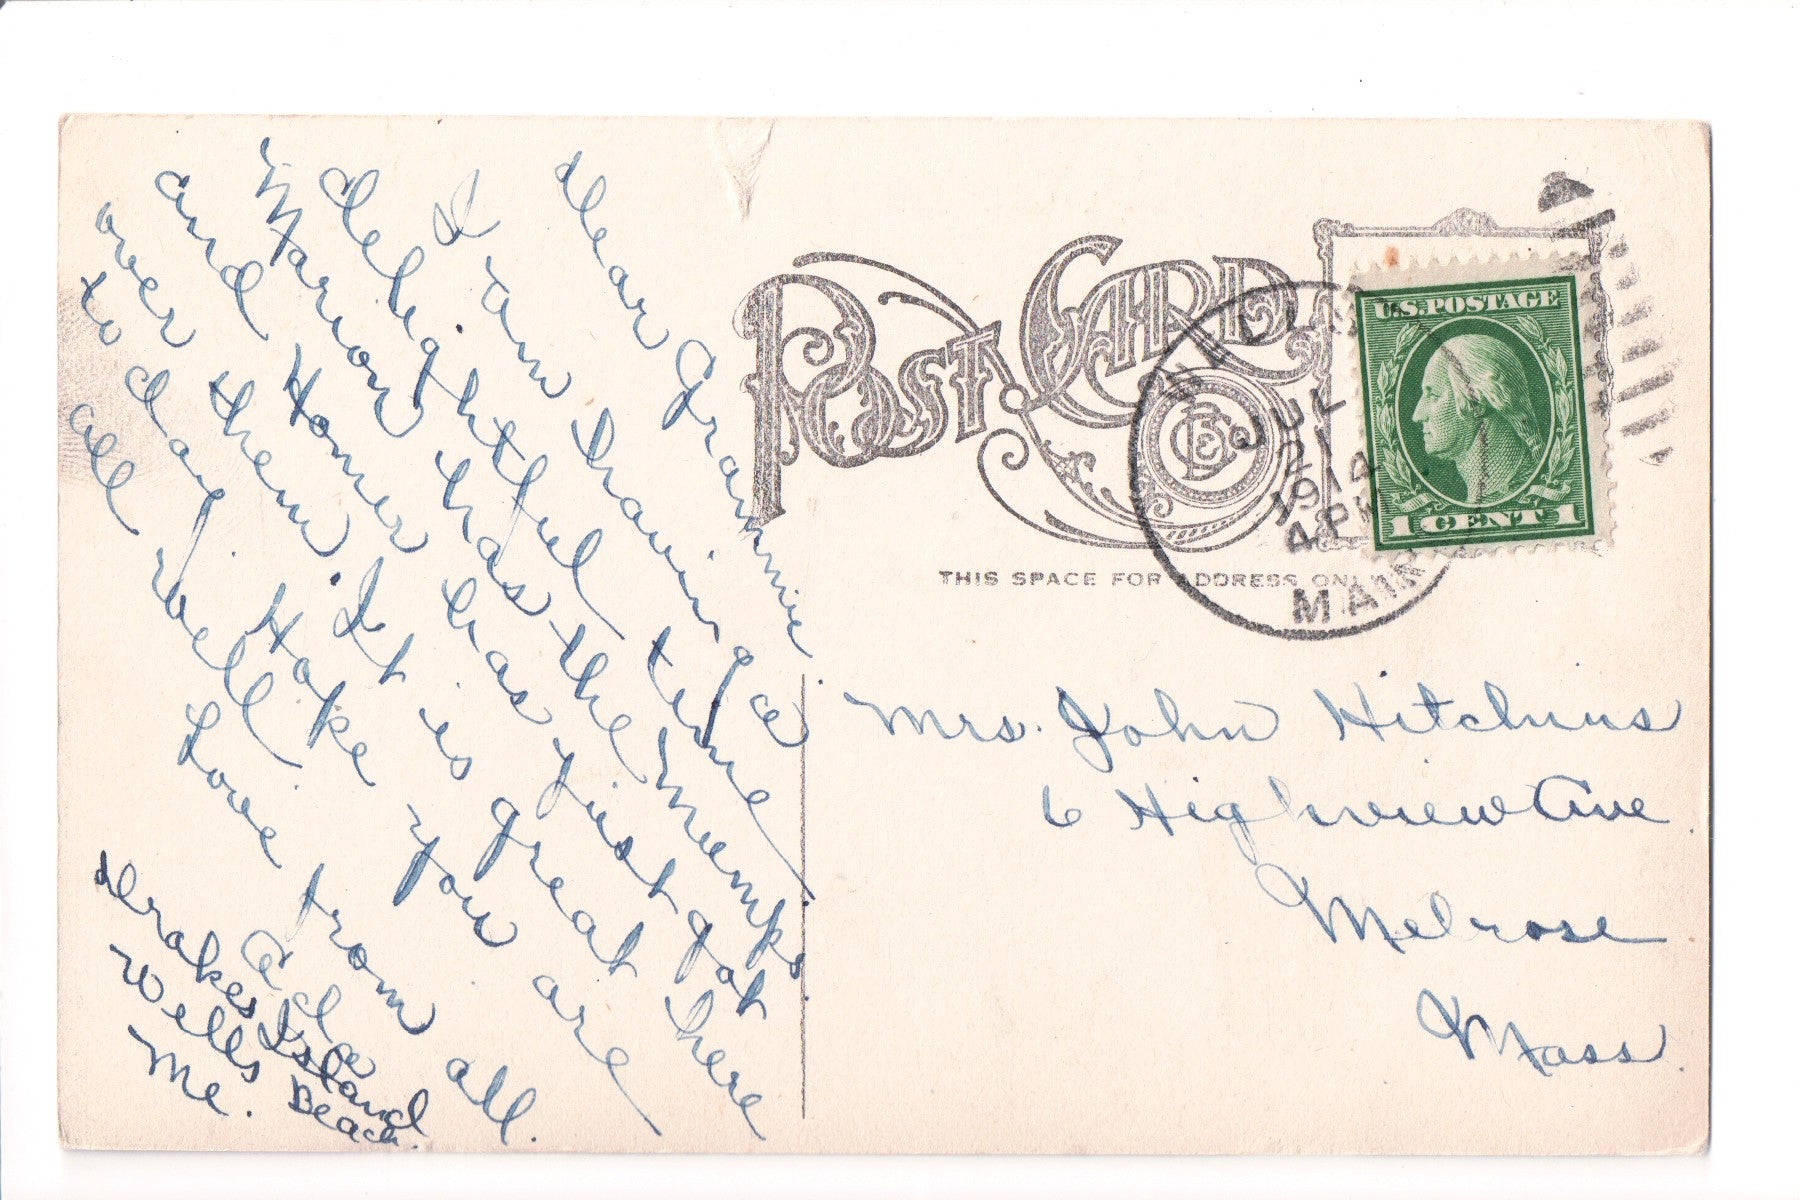 Dear Grammie
I am having a
delightful time
Marion has the mumps.
and Homer has just got
over them. It is great here
to day. Hope you are
all well
Love from all.
Ada
Drakes Island
Wells Beach.
Me.
POST CARD
THIS SPACE FOR ADDRESS ONLY
U.S. POSTAGE
1 CENT 1
JUL
21
1914
4 PM
MAINE
Mrs. John Hitchins
6 Highview Ave
Melrose
Mass.